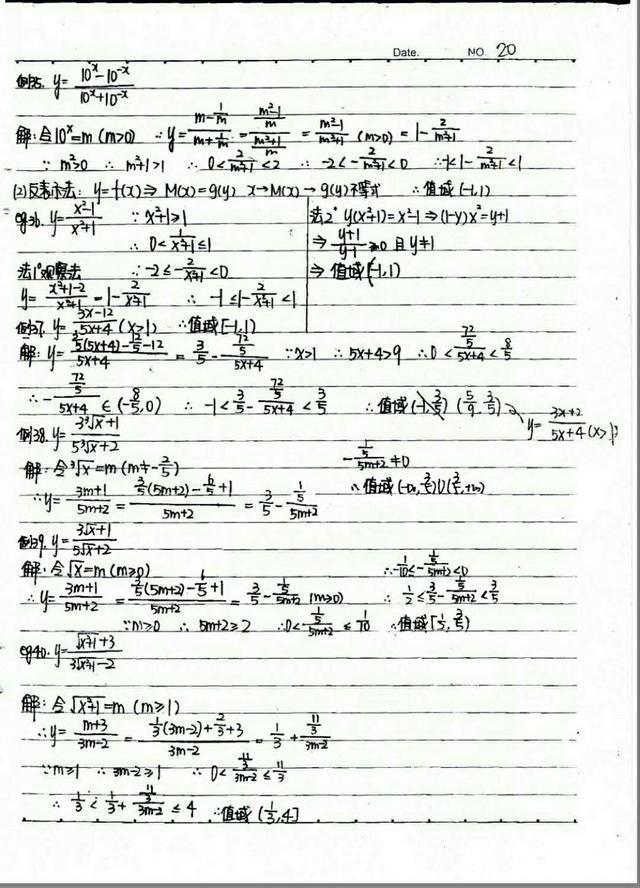 Date. NO. 20
例35. y = (10^x - 10^-x)/(10^x + 10^-x)
解: 令10^x = m (m>0) ∴ y = (m - 1/m)/(m + 1/m) = ((m²-1)/m)/((m²+1)/m) = (m²-1)/(m²+1) (m>0) = 1 - 2/(m²+1)
∵ m²>0 ∴ m²+1>1 ∴ 0 < 2/(m²+1) < 2 ∴ -2 < -2/(m²+1) < 0 ∴ -1 < 1 - 2/(m²+1) < 1
(2) 反表示法: y = f(x) ⇒ M(x) = g(y) x → M(x) → g(y)不等式 ∴ 值域 (-1,1)
eg36. y = (x²-1)/(x²+1) ∵ x²+1≥1
∴ 0 < 1/(x²+1) ≤ 1
法1° 观察法 ∴ -2 ≤ -2/(x²+1) < 0
y = (x²+1-2)/(x²+1) = 1 - 2/(x²+1) ∴ -1 ≤ 1 - 2/(x²+1) < 1
∴ 值域[-1,1)
法2° y(x²+1) = x²-1 ⇒ (1-y)x² = y+1
⇒ (y+1)/(y-1) ≥0 且 y≠1
⇒ 值域[-1,1)
例37. y = (3x-12)/(5x+4) (x>1)
解: y = (3/5(5x+4) - 12/5 - 12)/(5x+4) = 3/5 - (72/5)/(5x+4) ∵ x>1 ∴ 5x+4>9 ∴ 0 < (72/5)/(5x+4) < 8/5
∴ -(72/5)/(5x+4) ∈ (-8/5, 0) ∴ -1 < 3/5 - (72/5)/(5x+4) < 3/5 ∴ 值域 (-1, 3/5) (5/9, 3/5)
y = (3x+2)/(5x+4) (x>1)
例38. y = (3∛x+1)/(5∛x+2)
解: 令∛x = m (m≠-2/5)
∴ y = (3m+1)/(5m+2) = (3/5(5m+2) - 6/5 + 1)/(5m+2) = 3/5 - (1/5)/(5m+2)
-(1/5)/(5m+2) ≠ 0
∴ 值域 (-∞, 3/5)∪(3/5, +∞)
例39. y = (3√x+1)/(5√x+2)
解: 令√x = m (m≥0)
∴ y = (3m+1)/(5m+2) = (3/5(5m+2) - 6/5 + 1)/(5m+2) = 3/5 - (1/5)/(5m+2) (m≥0)
∵ m≥0 ∴ 5m+2≥2 ∴ 0 < (1/5)/(5m+2) ≤ 1/10
∴ -1/10 ≤ -(1/5)/(5m+2) < 0
∴ 1/2 ≤ 3/5 - (1/5)/(5m+2) < 3/5
∴ 值域[1/2, 3/5)
eg40. y = (√(x²+1)+3)/(3√(x²+1)-2)
解: 令√(x²+1) = m (m≥1)
∴ y = (m+3)/(3m-2) = (1/3(3m-2) + 2/3 + 3)/(3m-2) = 1/3 + (11/3)/(3m-2)
∵ m≥1 ∴ 3m-2≥1 ∴ 0 < (11/3)/(3m-2) ≤ 11/3
∴ 1/3 < 1/3 + (11/3)/(3m-2) ≤ 4 ∴ 值域 (1/3, 4]